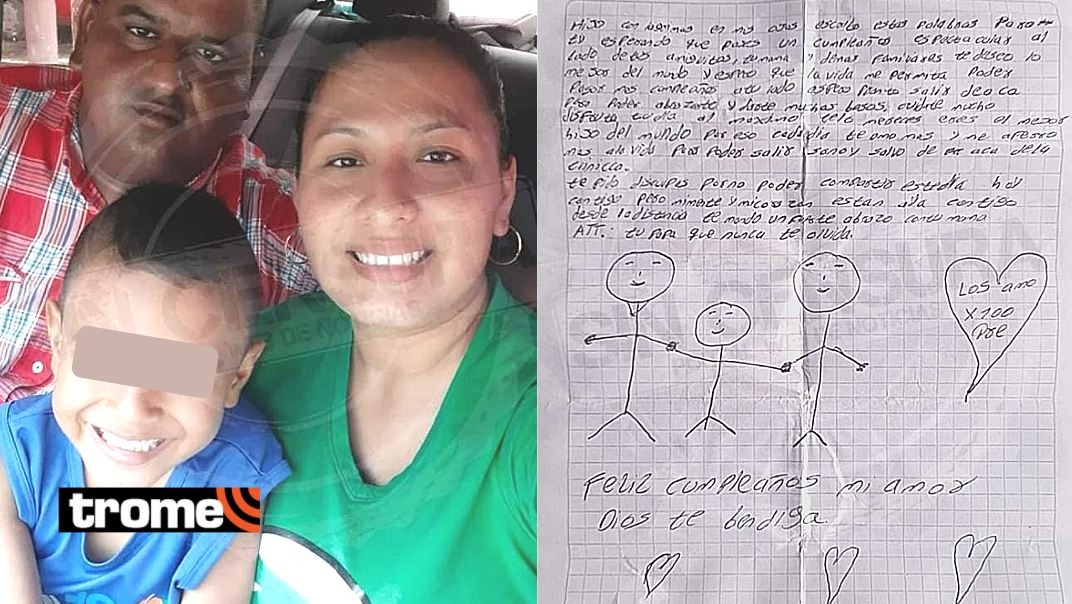 Hijo con lagrimas en mis ojos escribo estas palabras Para
ti esperando que pases un cumpleaños espectacular al
lado de tus amiguitos, tu mama y demas familiares te deseo lo
mejor del mundo y espero que la vida me permita poder
Pasar mis cumpleaños a tu lado espero pronto salir de aca
Para Poder abrazarte y darte muchos besos, cuidate mucho
disfruta tu dia al maximo te lo mereces eres el mejor
hijo del mundo Por eso cada dia te amo mas y me aferro
mas a la vida Para Poder salir sano y salvo de aca de la
clinica.
te pido disculpas por no poder compartir este dia hoy
contigo pero mi mente y mi corazon estan alla contigo
desde la distancia te mando un fuerte abrazo con tu mama
ATT: tu Papa que nunca te olvida.
Los amo
X 100
Pre
trome
Feliz cumpleaños mi amor
Dios te bendiga